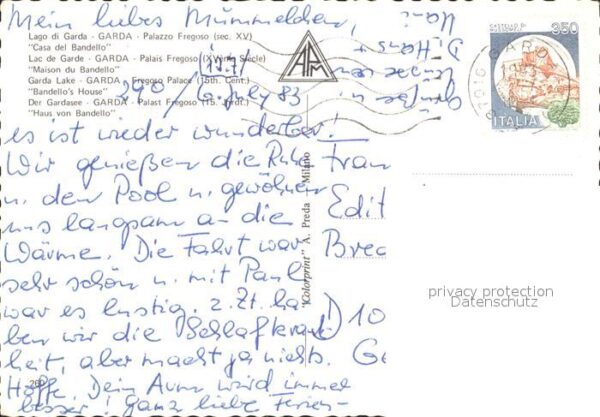 Mein liebes Mümmelchen,
Lago di Garda - GARDA - Palazzo Fregoso (sec. XV)
"Casa del Bandello"
Lac de Garde - GARDA - Palais Fregoso (XVème Siècle)
"Maison du Bandello"
Garda Lake - GARDA - Fregoso Palace (15th. Cent.)
"Bandello's House"
Der Gardasee - GARDA - Palast Fregoso (15. Jhrdt.)
"Haus von Bandello"
390/
6. July 83
es ist wieder wunderbar!
Wir genießen die Ruhe
u. den Pool u. gewöhnen
uns langsam an die
Wärme. Die Fahrt war
sehr schön u. mit Paul
war es lustig. z. Zt. ha
ben wir die Schlafkrank
heit, aber macht ja nichts.
Hoffe, Dein Arm wird immer
besser! Ganz liebe Ferien-
grüße u.
Dein
APM
"Colorprint" A. Preda - Milano
260
350
ITALIA
GARDA
Fran
Edit
Brec
D 10
Ge
privacy protection
Datenschutz